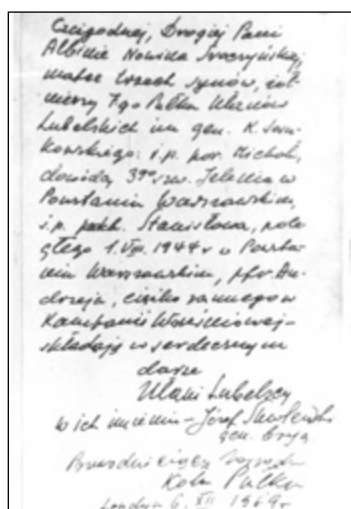 Czcigodnej, Drogiej Pani
Albinie Nowina Sroczyńskiej,
matce trzech synów, żoł-
nierzy 7go Pułku Ułanów
Lubelskich im gen. K. Sosn-
kowskiego: ś.p. por. Michała,
dowódcy 3go szw. Jelenia w
Powstaniu Warszawskim,
ś.p. Stanisława, pole-
głego 1.VIII.1944 r w Powsta-
niu Warszawskim, An-
drzeja, ciężko rannego w
Kampanii Wrześniowej -
składają w serdecznym
darze
Ułani Lubelscy
w ich imieniu - Józef
gen. bryg.
Koła Pułku
Londyn 6. XII 1969 r